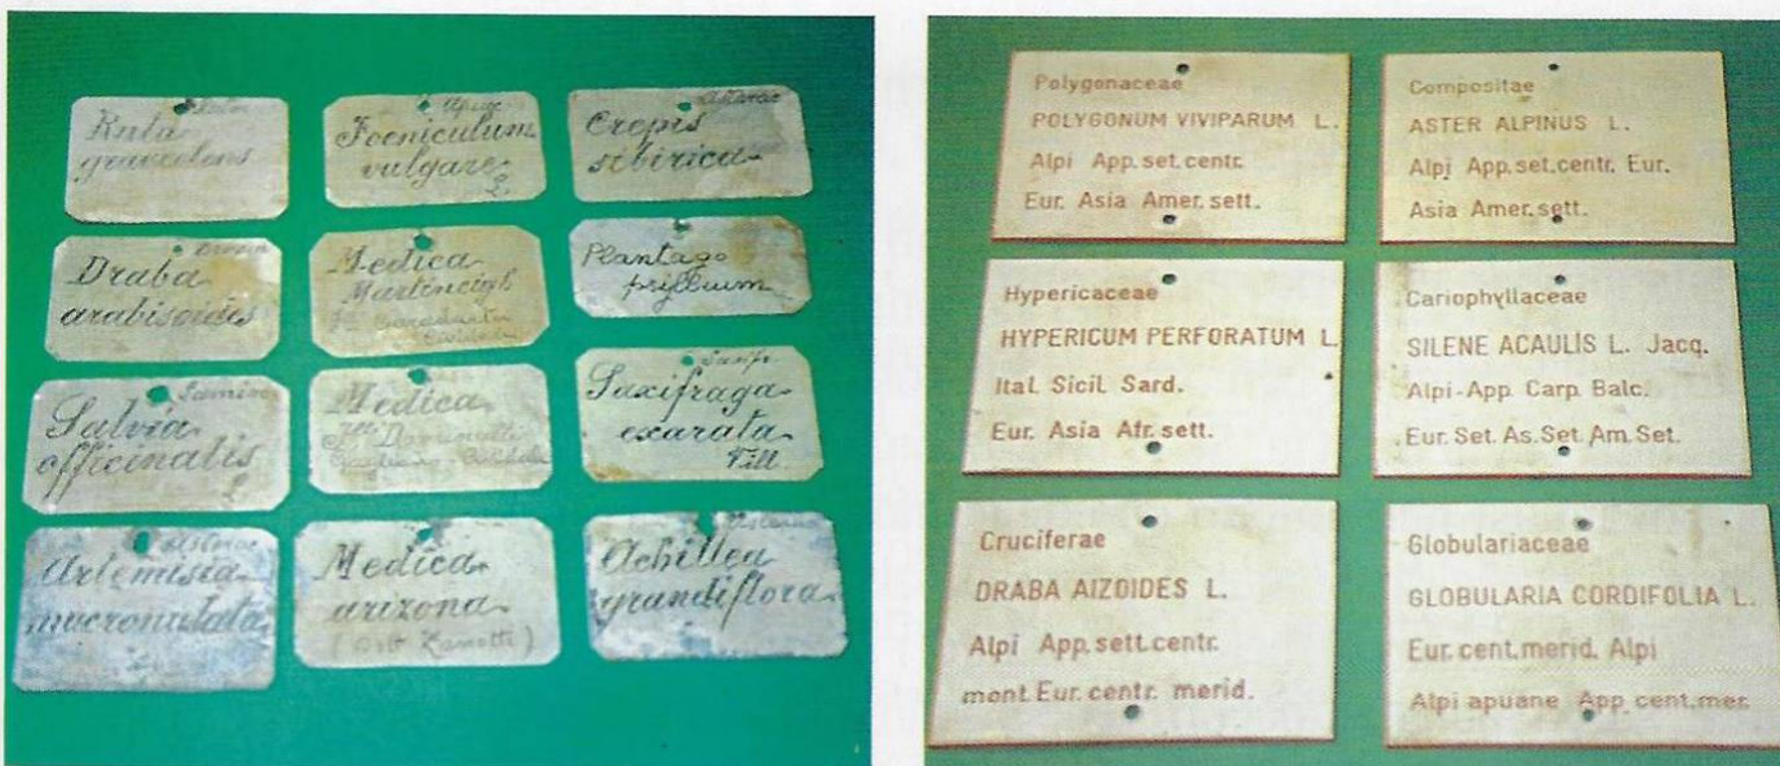 Ruta
graveolens
Apiac
Foeniculum
vulgare
L.
Asterac
Crepis
sibirica
Draba
arabisoides
Medica
Plantago
psyllium
Salvia
officinalis
L
Medica
Saxifraga
exarata
Vill.
Asterac
Artemisia
mucronulata
Medica
arizona
(Orto Zanotti)
Asterac
Achillea
grandiflora
Polygonaceae
POLYGONUM VIVIPARUM L.
Alpi App. set. centr.
Eur. Asia Amer. sett.
Compositae
ASTER ALPINUS L.
Alpi App. set. centr. Eur.
Asia Amer. sett.
Hypericaceae
HYPERICUM PERFORATUM L.
Ital. Sicil. Sard.
Eur. Asia Afr. sett.
Cariophyllaceae
SILENE ACAULIS L. Jacq.
Alpi-App. Carp. Balc.
Eur. Set. As. Set. Am. Set.
Cruciferae
DRABA AIZOIDES L.
Alpi App. sett. centr.
mont. Eur. centr. merid.
Globulariaceae
GLOBULARIA CORDIFOLIA L.
Eur. cent. merid. Alpi
Alpi apuane App. cent. mer.